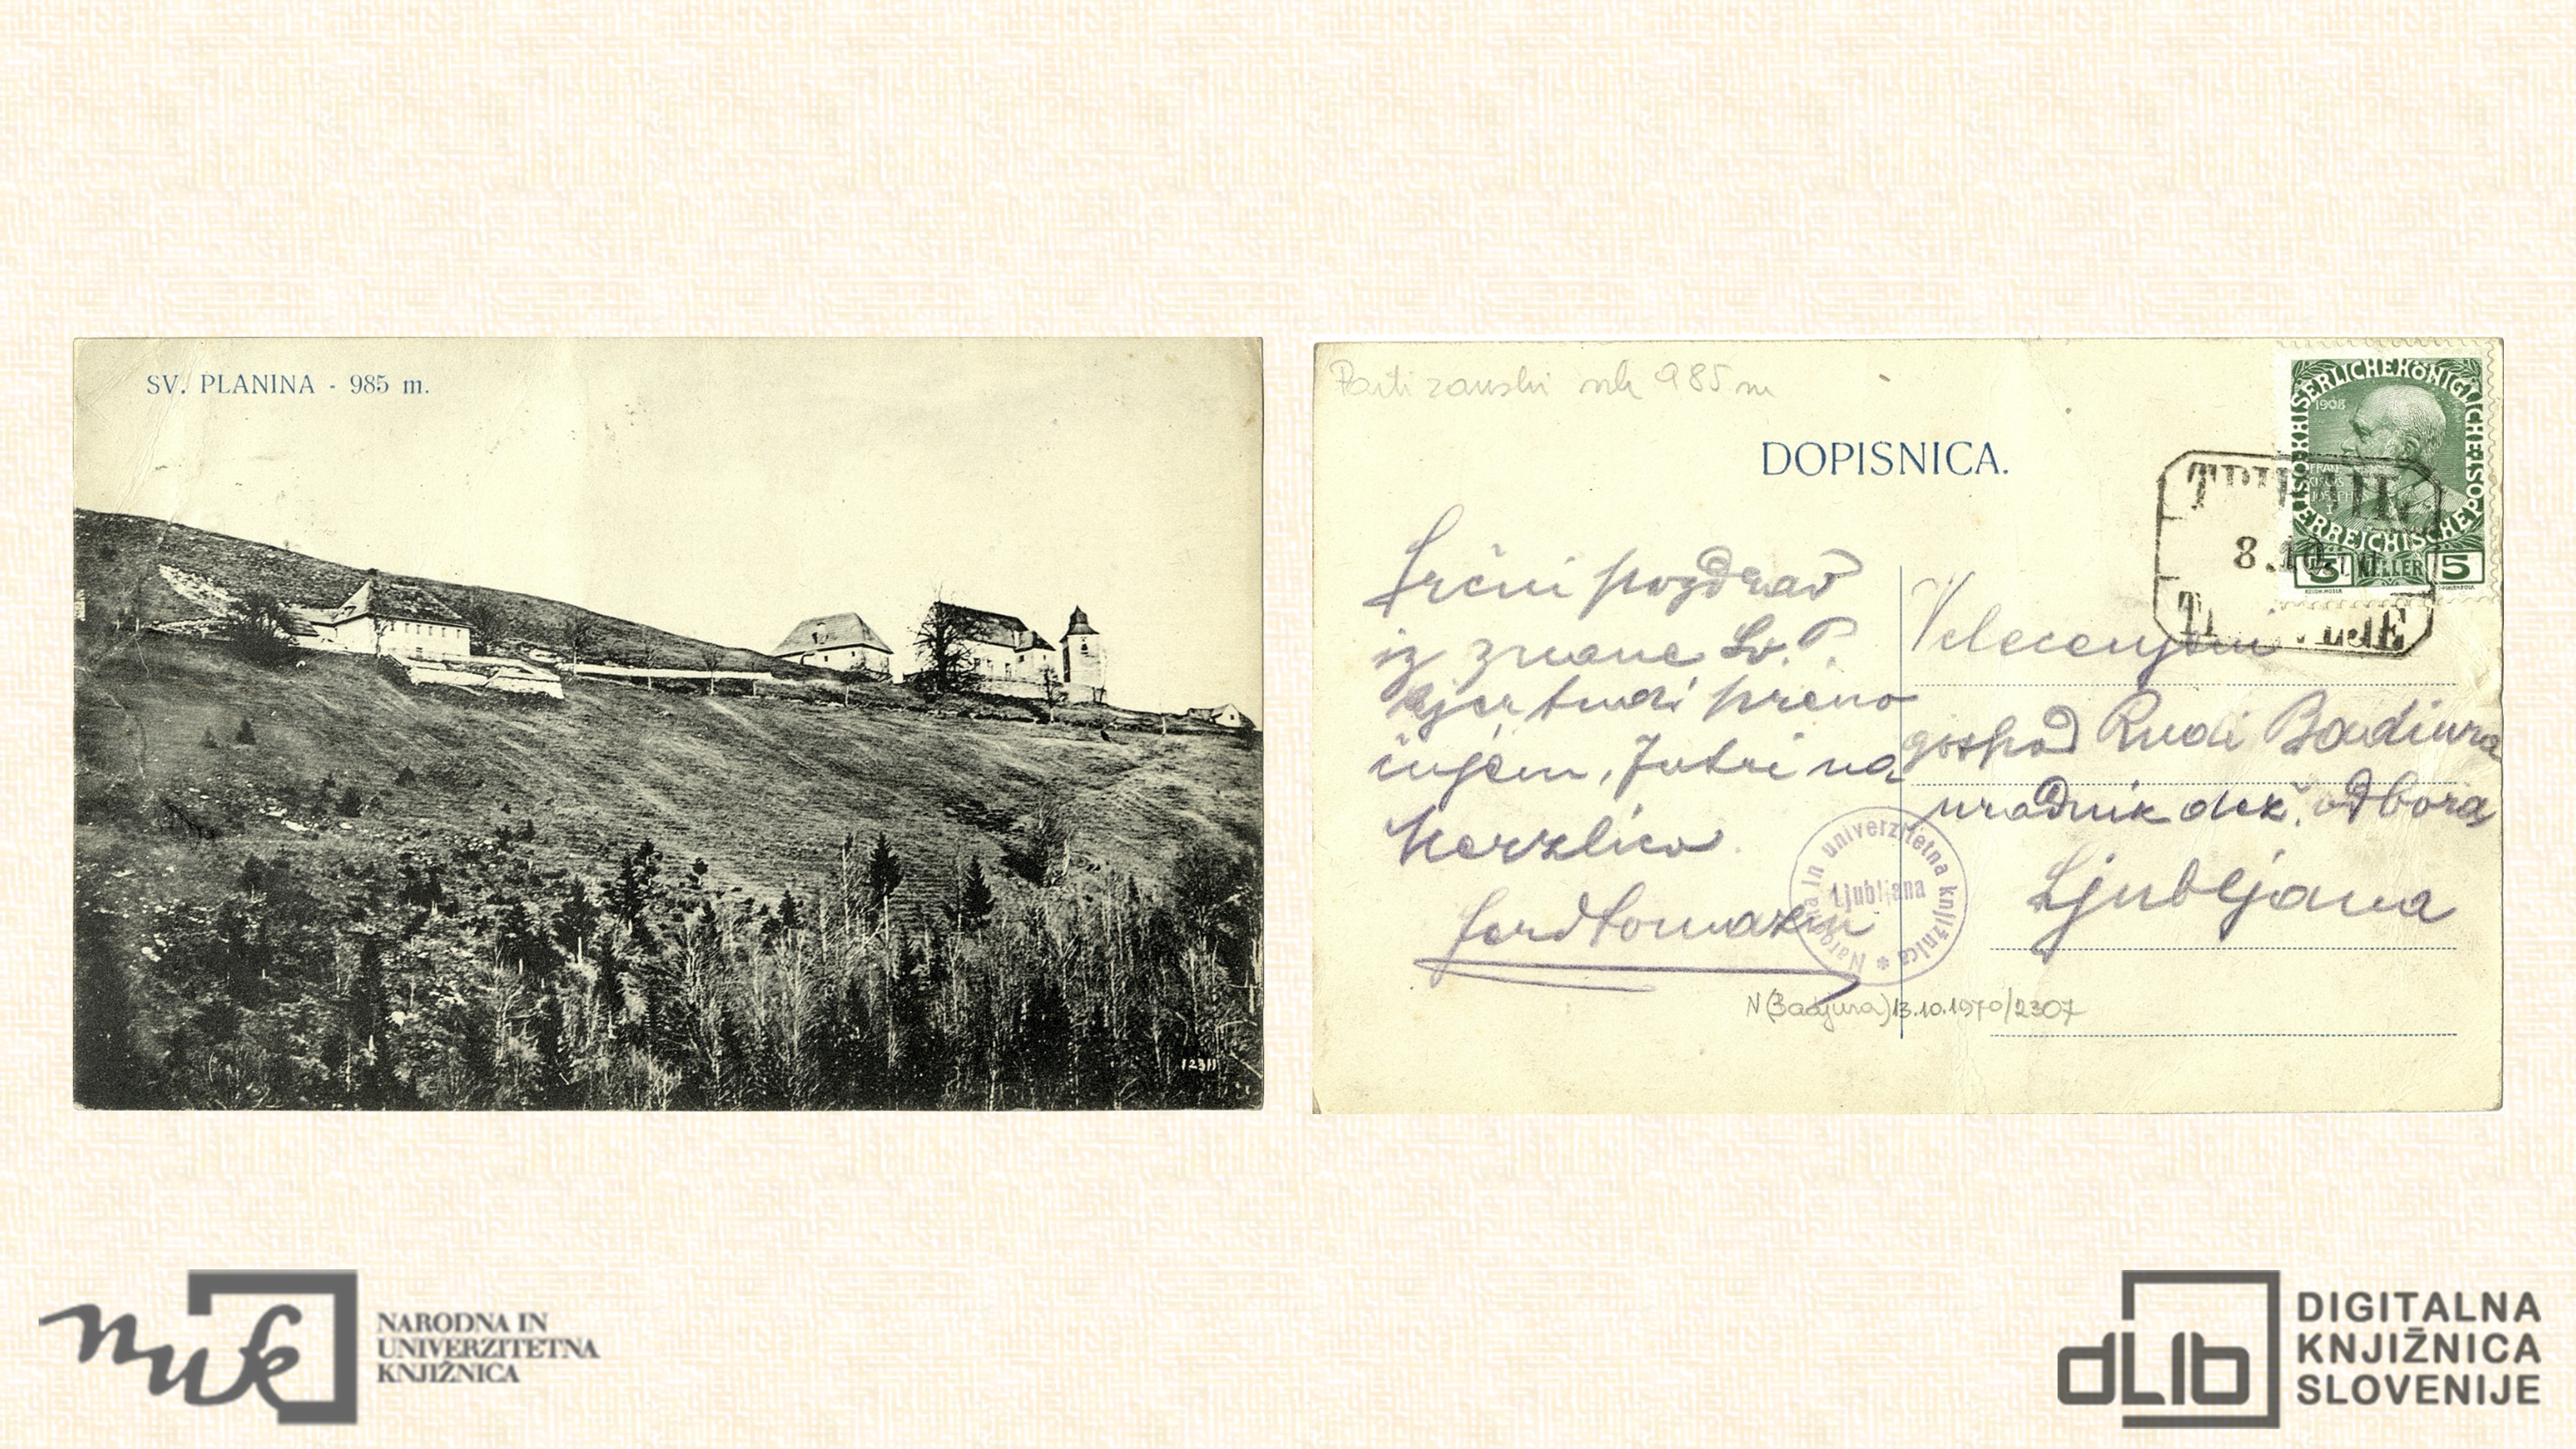 SV. PLANINA - 985 m.
12311
Partizanski vrh 985 m
DOPISNICA.
KAISERLICHE KÖNIGLICHE ÖSTERREICHISCHE POST
1908
FRANZ
JOSEPH I
5 HELLER 5
8.10
Srčni pozdrav
iz znane Sv. P.
kjer tudi preno
čujem, Jutri na
Merzlico.
Ferd Tomazin
Velecenjeni
gospod Rudi Badiura
uradnik dež. odbora
Ljubljana
Narodna in univerzitetna knjižnica *
Ljubljana
N(Badjura)13.10.1970/2307
nuk
NARODNA IN
UNIVERZITETNA
KNJIŽNICA
dLib
DIGITALNA
KNJIŽNICA
SLOVENIJE